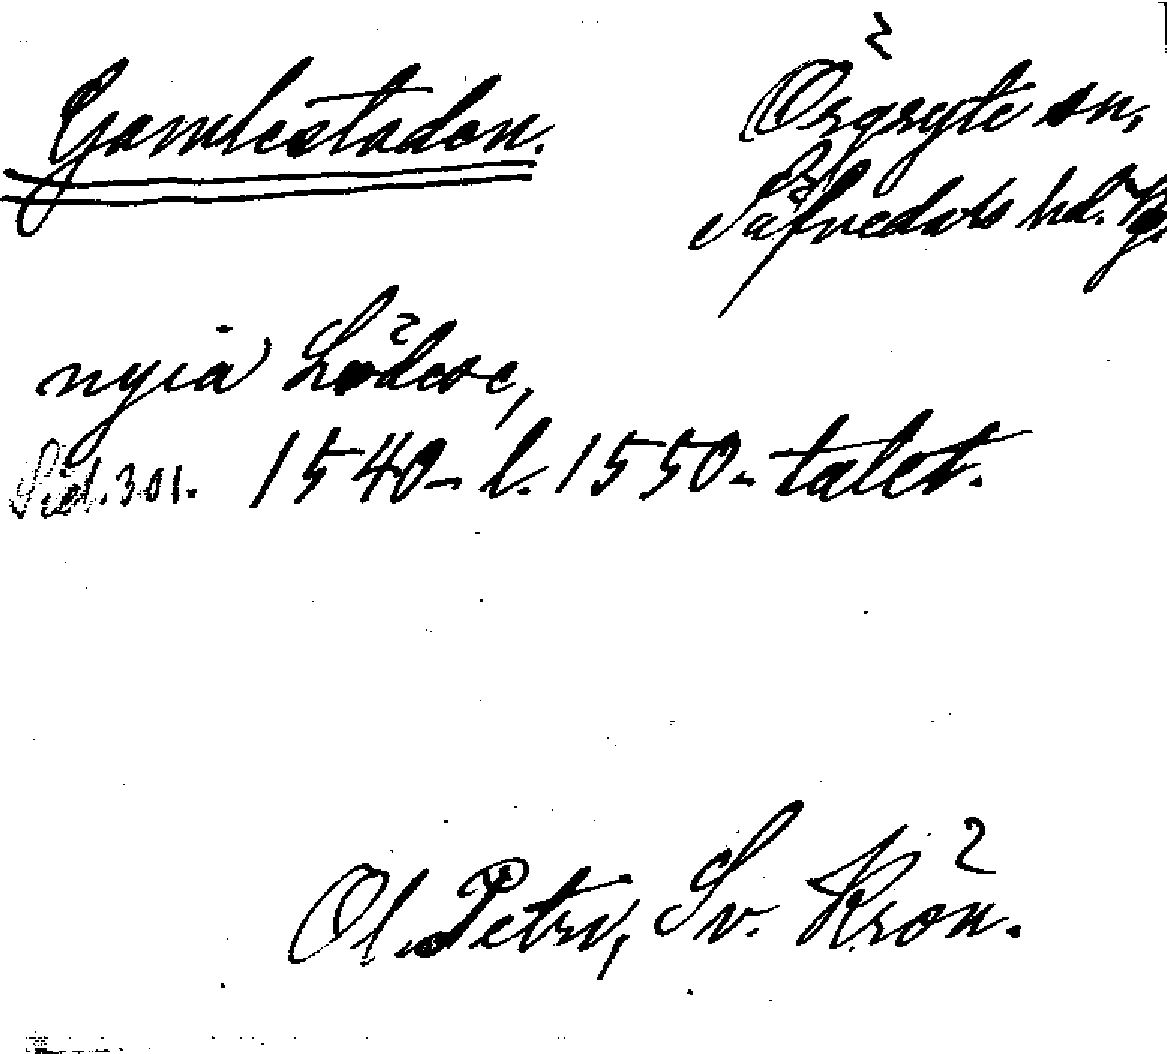 Gamlestaden.
Örgryte sn,
Säfvedals hd. Vg.
nyia Lödese,
Sid. 301. 1540- l. 1550-talet.
Ol. Petri, Sv. Krön.